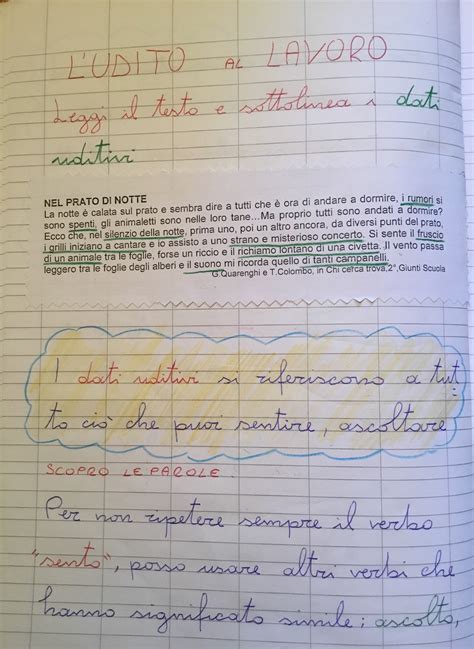 L'UDITO AL LAVORO
Leggi il testo e sottolinea i dati
uditivi
NEL PRATO DI NOTTE
La notte è calata sul prato e sembra dire a tutti che è ora di andare a dormire, i rumori si
sono spenti, gli animaletti sono nelle loro tane...Ma proprio tutti sono andati a dormire?
Ecco che, nel silenzio della notte, prima uno, poi un altro ancora, da diversi punti del prato,
i grilli iniziano a cantare e io assisto a uno strano e misterioso concerto. Si sente il fruscio
di un animale tra le foglie, forse un riccio e il richiamo lontano di una civetta. Il vento passa
leggero tra le foglie degli alberi e il suono mi ricorda quello di tanti campanelli.
G.Quarenghi e T.Colombo, in Chi cerca trova,2°,Giunti Scuola
I dati uditivi si riferiscono a tut
to ciò che puoi sentire, ascoltare
SCOPRO LE PAROLE.
Per non ripetere sempre il verbo
"sento", posso usare altri verbi che
hanno significato simile: ascolto,